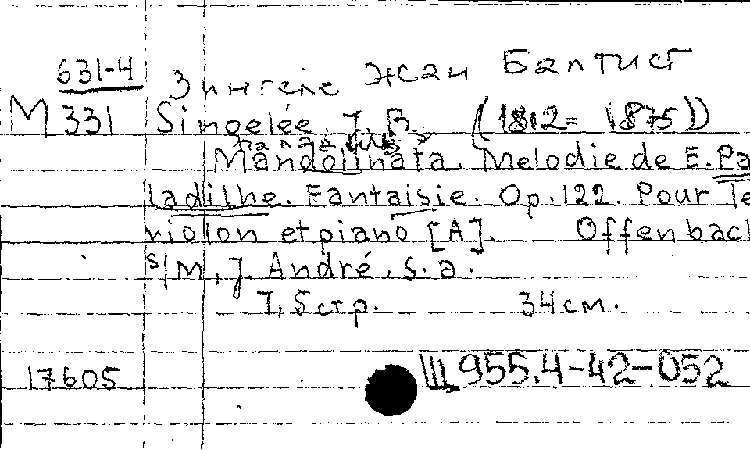 631-4
Зингеле Жан Баптист
М 331 Singelée, J. B. (1812 = 1875)
Mandolinata. Melodie de E. Pa
ladilhe. Fantaisie. Op. 122. Pour le
violon et piano [A]. Offenbach
s/M, J. André, s. a.
7, 5 стр. 34 см.
17605
Ш 955.4-42-052